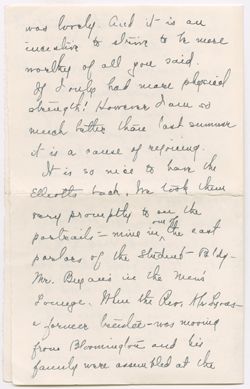 was lovely. And it is an
incentive to strive to be more
worthy of all you said.
If I only had more physical
strength! However I am so
much better than last summer
it is a cause of rejoicing.
It is so nice to have the
Elliotts back. We took them
very promptly to see the
portraits – mine in the east
parlors of the Student Bldg –
Mr. Bryan's in the Men's
Lounge. When the Rev. Mr.
a former – was moving
from Bloomington and his
family were assembled at the